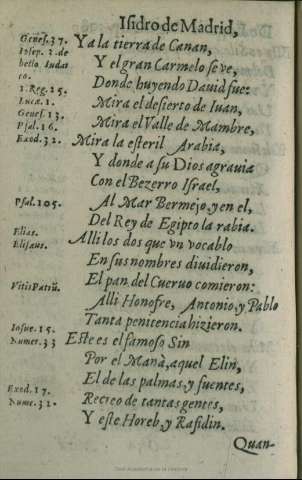 Isidro de Madrid,
Genes. 37.
Iosep. 2. de
bello Iudai
co.
1. Reg. 25.
Lucæ. 1.
Genes. 13.
Psal. 16.
Exod. 32.
Psal. 105.
Elias.
Elisæus.
Vitis Patrũ.
Iosue. 15.
Numer. 33
Exod. 17.
Nume. 32.
Y a la tierra de Canan,
Y el gran Carmelo se ve,
Donde huyendo Dauid fue:
Mira el desierto de Iuan,
Mira el Valle de Mambre,
Mira la esteril Arabia,
Y donde a su Dios agrauia
Con el Bezerro Israel,
Al Mar Bermejo, y en el,
Del Rey de Egipto la rabia.
Alli los dos que vn vocablo
En sus nombres diuidieron,
El pan del Cueruo comieron:
Alli Honofre, Antonio, y Pablo
Tanta penitencia hizieron.
Este es el famoso Sin
Por el Manà, aquel Elin,
El de las palmas, y fuentes,
Recreo de tantas gentes,
Y este Horeb, y Rafidin.
Quan-